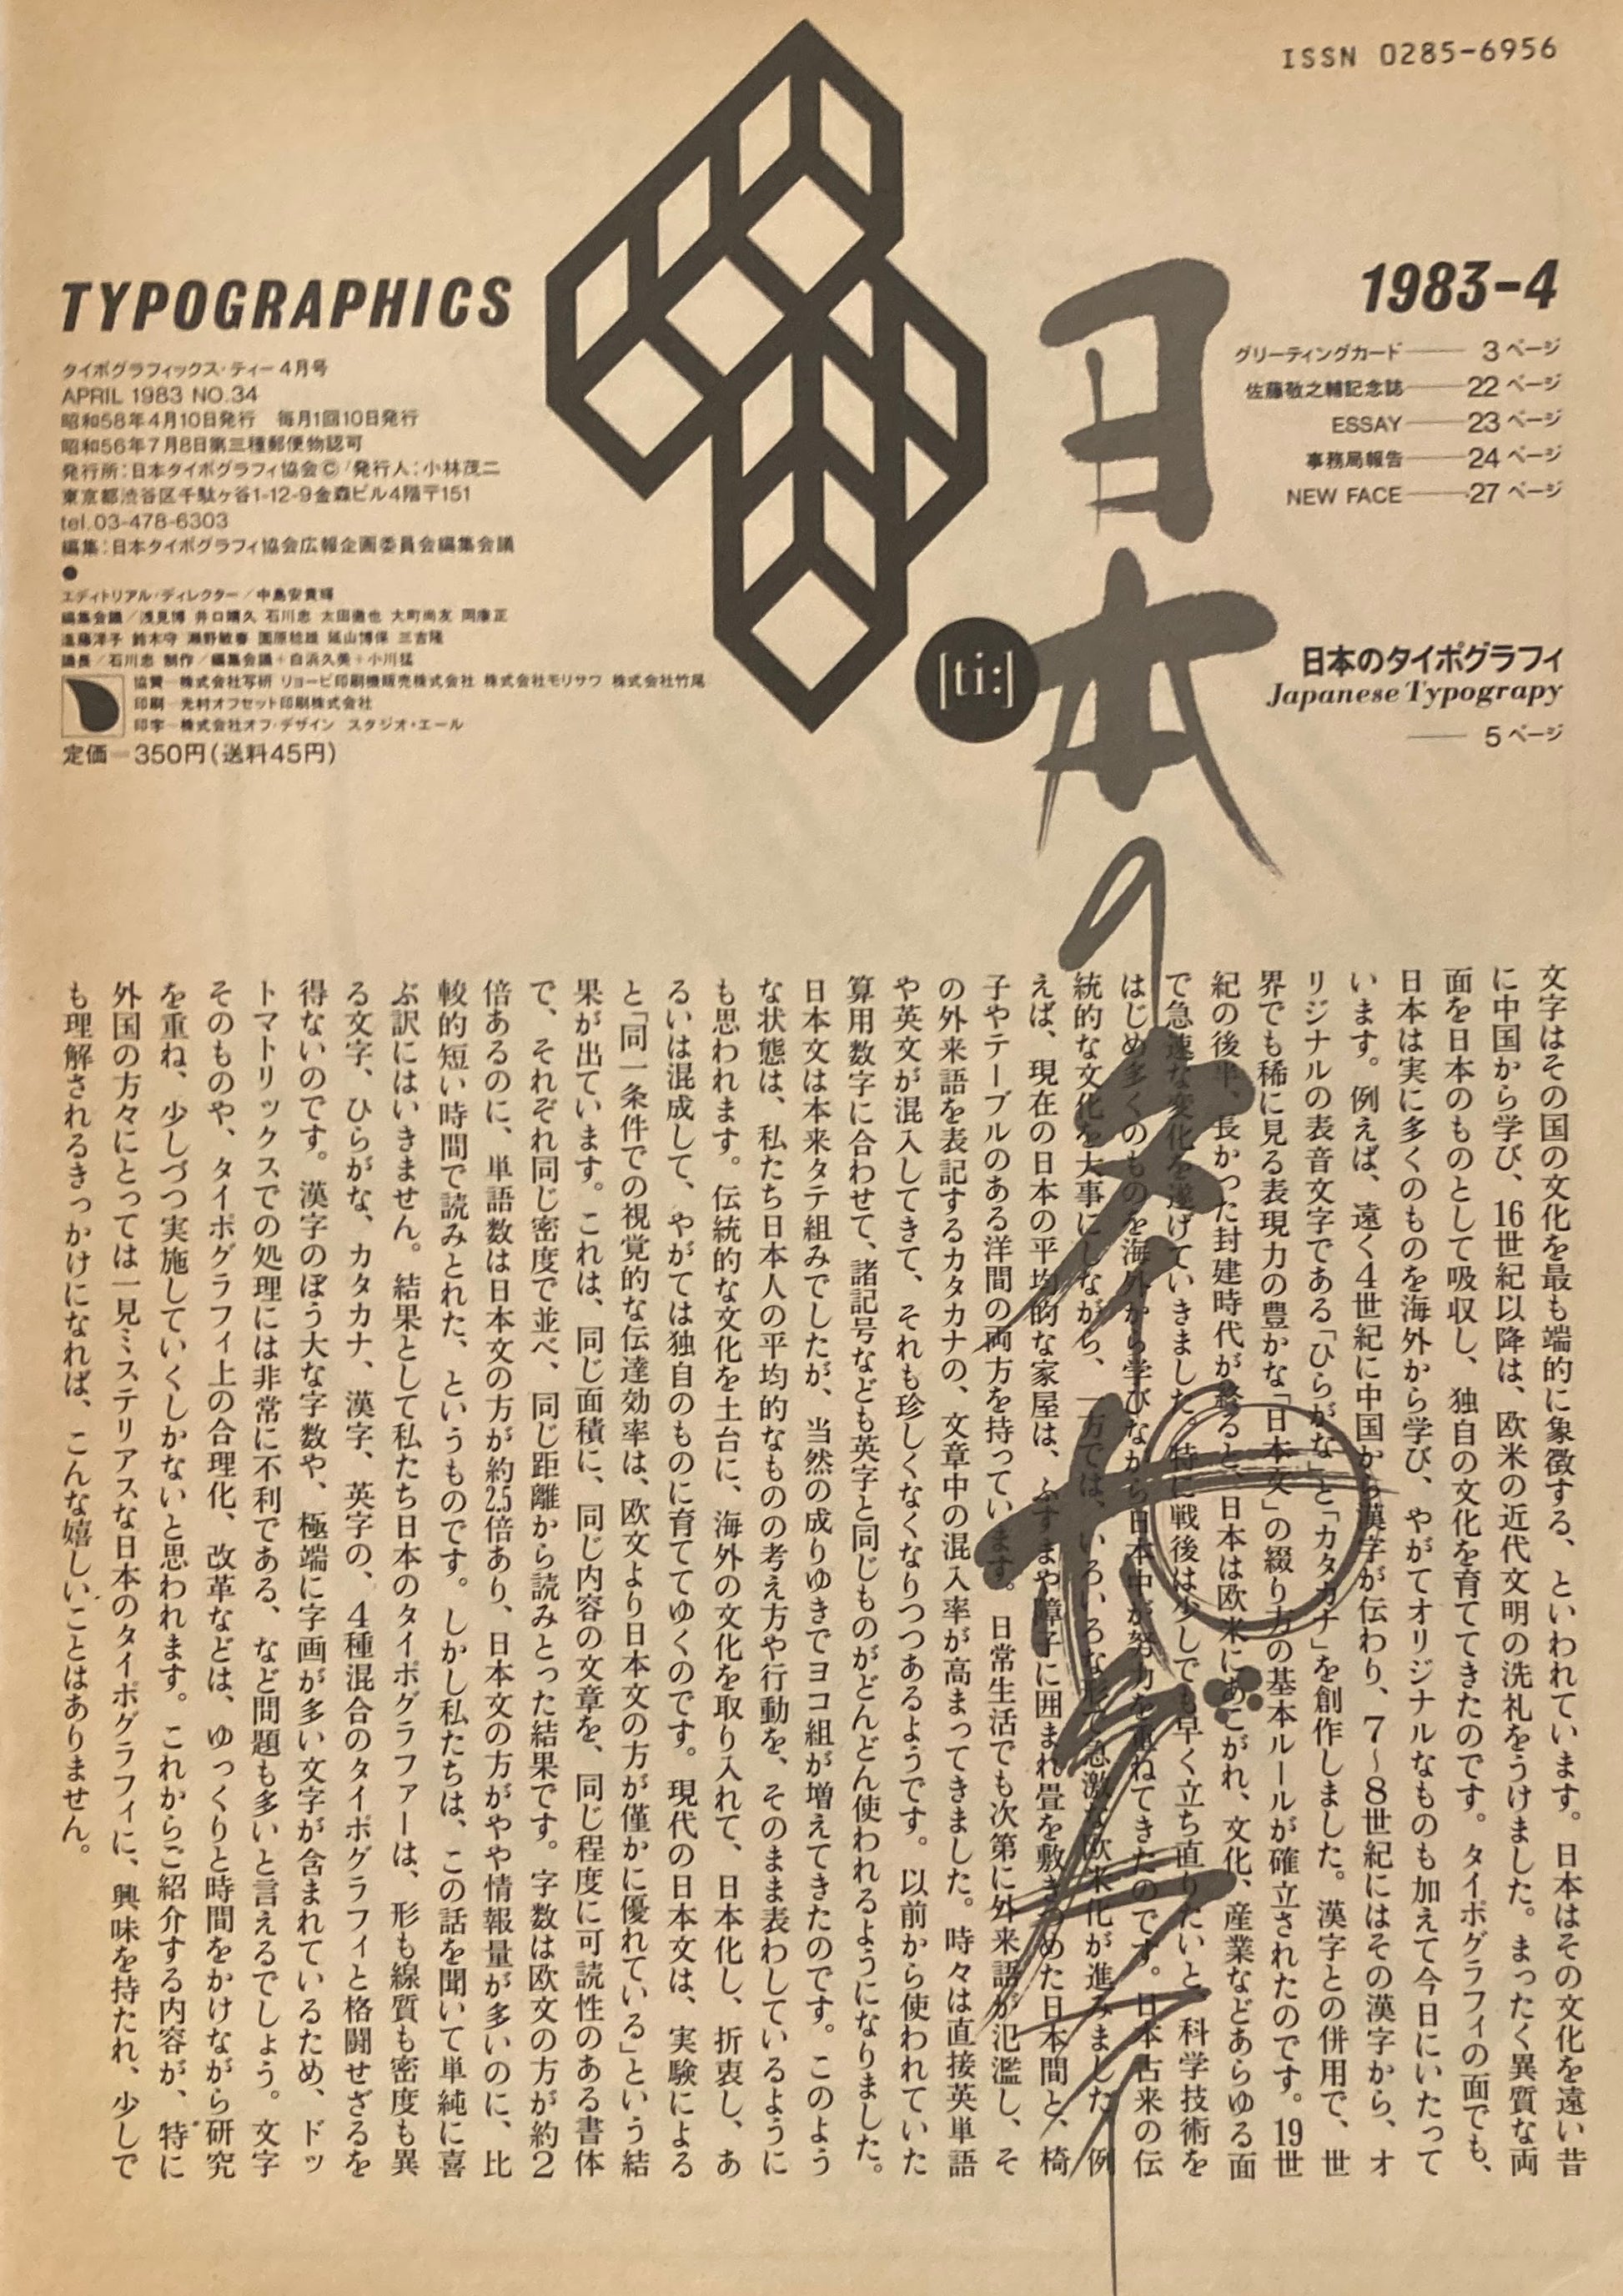 ISSN 0285-6956
TYPOGRAPHICS
タイポグラフィックス・ティー 4月号
APRIL 1983 NO.34
昭和58年4月10日発行　毎月1回10日発行
昭和56年7月8日第三種郵便物認可
発行所：日本タイポグラフィ協会©／発行人：小林茂二
東京都渋谷区千駄ヶ谷1-12-9金森ビル4階〒151
tel.03-478-6303
編集：日本タイポグラフィ協会広報企画委員会編集会議
●
エディトリアル・ディレクター／中島安貴輝
編集会議／浅見博 井口晴久 石川忠 太田徹也 大町尚友 岡康正
進藤洋子 鈴木守 瀬野敏春 園原稔雄 延山博保 三吉隆
議長／石川忠 制作／編集会議＋白浜久美＋小川猛
協賛―株式会社写研 リョービ印刷機販売株式会社 株式会社モリサワ 株式会社竹尾
印刷―光村オフセット印刷株式会社
印字―株式会社オフ・デザイン スタジオ・エール
定価―350円（送料45円）
[ti:]
日本のタイポグラフィ
1983-4
グリーティングカード――3ページ
佐藤敬之輔記念誌――22ページ
ESSAY――23ページ
事務局報告――24ページ
NEW FACE――27ページ
日本のタイポグラフィ
Japanese Typograpy
――5ページ
文字はその国の文化を最も端的に象徴する、といわれています。日本はその文化を遠い昔
に中国から学び、16世紀以降は、欧米の近代文明の洗礼をうけました。まったく異質な両
面を日本のものとして吸収し、独自の文化を育ててきたのです。タイポグラフィの面でも、
日本は実に多くのものを海外から学び、やがてオリジナルなものも加えて今日にいたって
います。例えば、遠く4世紀に中国から漢字が伝わり、7～8世紀にはその漢字から、オ
リジナルの表音文字である「ひらがな」と「カタカナ」を創作しました。漢字との併用で、世
界でも稀に見る表現力の豊かな「日本文」の綴り方の基本ルールが確立されたのです。19世
紀の後半、長かった封建時代が終ると、日本は欧米にあこがれ、文化、産業などあらゆる面
で急速な変化を遂げていきました。特に戦後は少しでも早く立ち直りたいと、科学技術を
はじめ多くのものを海外から学びながら日本中が努力を重ねてきたのです。日本古来の伝
統的な文化を大事にしながら、一方では、いろいろな形で急激な欧米化が進みました。例
えば、現在の日本の平均的な家屋は、ふすまや障子に囲まれ畳を敷きつめた日本間と、椅
子やテーブルのある洋間の両方を持っています。日常生活でも次第に外来語が氾濫し、そ
の外来語を表記するカタカナの、文章中の混入率が高まってきました。時々は直接英単語
や英文が混入してきて、それも珍しくなくなりつつあるようです。以前から使われていた
算用数字に合わせて、諸記号なども英字と同じものがどんどん使われるようになりました。
日本文は本来タテ組みでしたが、当然の成りゆきでヨコ組が増えてきたのです。このよう
な状態は、私たち日本人の平均的なものの考え方や行動を、そのまま表わしているように
も思われます。伝統的な文化を土台に、海外の文化を取り入れて、日本化し、折衷し、あ
るいは混成して、やがては独自のものに育ててゆくのです。現代の日本文は、実験による
と「同一条件での視覚的な伝達効率は、欧文より日本文の方が僅かに優れている」という結
果が出ています。これは、同じ面積に、同じ内容の文章を、同じ程度に可読性のある書体
で、それぞれ同じ密度で並べ、同じ距離から読みとった結果です。字数は欧文の方が約2
倍あるのに、単語数は日本文の方が約2.5倍あり、日本文の方がやや情報量が多いのに、比
較的短い時間で読みとれた、というものです。しかし私たちは、この話を聞いて単純に喜
ぶ訳にはいきません。結果として私たち日本のタイポグラファーは、形も線質も密度も異
る文字、ひらがな、カタカナ、漢字、英字の、4種混合のタイポグラフィと格闘せざるを
得ないのです。漢字のぼう大な字数や、極端に字画が多い文字が含まれているため、ドッ
トマトリックスでの処理には非常に不利である、など問題も多いと言えるでしょう。文字
そのものや、タイポグラフィ上の合理化、改革などは、ゆっくりと時間をかけながら研究
を重ね、少しづつ実施していくしかないと思われます。これからご紹介する内容が、特に
外国の方々にとっては一見ミステリアスな日本のタイポグラフィに、興味を持たれ、少しで
も理解されるきっかけになれば、こんな嬉しいことはありません。